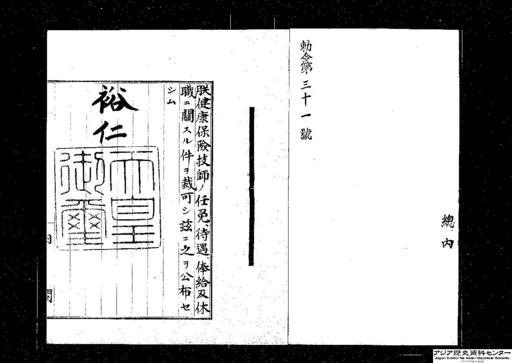 勅令第三十一號
總内
朕健康保險技師ノ任免、待遇、俸給及休
職ニ關スル件ヲ裁可シ茲ニ之ヲ公布セ
シム
裕仁
天皇
御璽
内閣
アジア歴史資料センター
Japan Center for Asian Historical Records